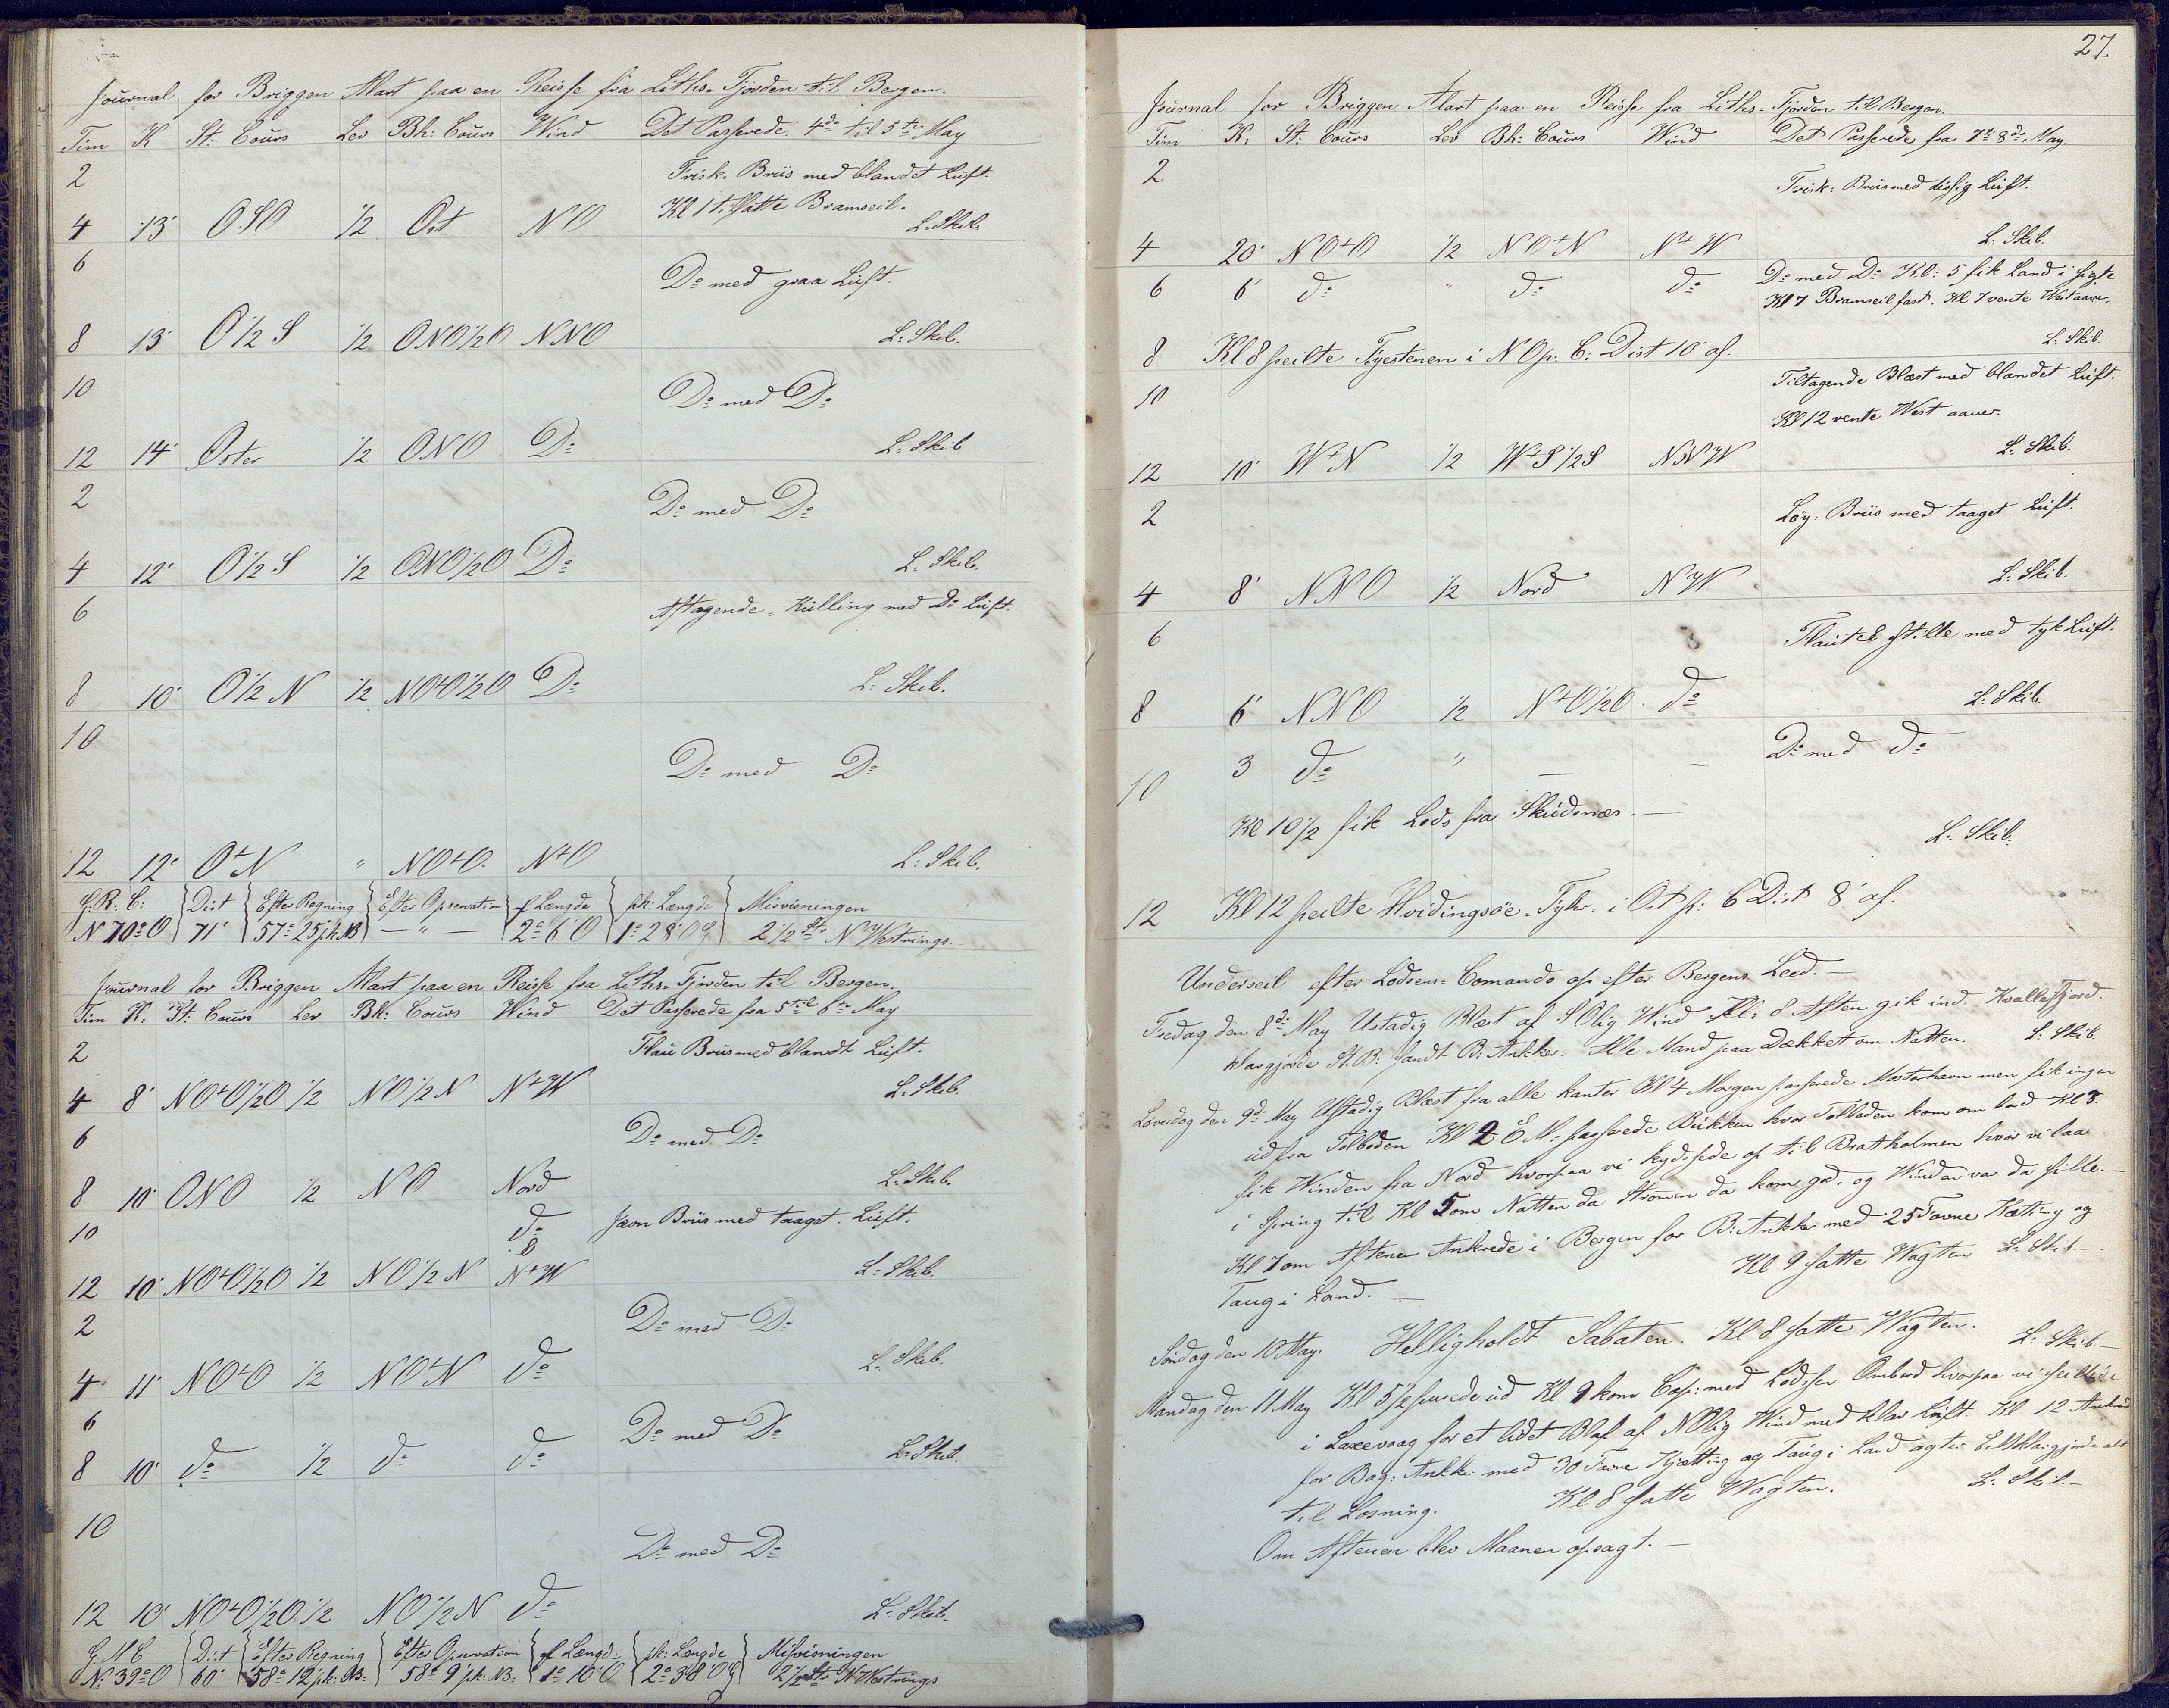 Journal for Briggen Mart paa en Reise fra Liths- Fjorden til Bergen.
Tim K St: Cours Lev Bh: Cours Wind Det Passerede 4de til 5te May
2 Frisk- Briis med blandet Luft.
Kl 1 t. satte Bramseil.
4 13' OSO 1/2 Ost NO L: Skib.
6 Do med graa Luft.
8 13' O 1/2 S 1/2 ONO 1/2 O NNO L: Skib.
10 Do med Do
12 14' Oster 1/2 ONO Do L: Skib
2 Do med Do
4 12' O 1/2 S 1/2 ONO 1/2 O Do L: Skib.
6 Aftagende- Kulling med Do Luft.
8 10' O 1/2 N 1/2 NO+O 1/2 O Do L: Skib.
10 Do med Do
12 12' O+N " NO+O. N+O L: Skib.
G: R. C: Dist Efter Regning Efter Opservation f Længde pk: Længde Misvisningen
N 70° O 71' 57° 25' pk NB — " — 2° 6' O 1° 28' OG 2 1/2 St. N Westrings.
Journal for Briggen Mart paa en Reise fra Liths- Fjorden til Bergen.
Tim K: St: Cours Lev Bh: Cours Wind Det Passerede fra 5 til 6te May
2 Flau Briis med blandt Luft.
4 8' NO+O 1/2 O 1/2 NO 1/2 N N+W L: Skib.
6 Do med Do
8 10' ONO 1/2 NO Nord L: Skib.
10 do Jævn Briis med taaget. Luft.
12 10' NO+O 1/2 O 1/2 NO 1/2 N N+W L: Skib.
2 Do med Do
4 11' NO+O 1/2 NO+N do L: Skib.
6 Do med Do
8 10' do 1/2 do do L: Skib.
10 Do med Do
12 10' NO+O 1/2 O 1/2 NO 1/2 N do L: Skib.
G: R C Dist Efter Regning Efter Opservation f Længd- pk: Længde Misvisningen
N: 39° O 60' 58° 12' pk: NB: 58° 9' pk: NB: 1° 10' O 2° 38' OG 2 1/2 St. N Westrings
27.
Journal for Briggen Mart paa en Reise fra Liths- Fjorden til Bergen.
Tim K: St. Cours Lev Bh: Cours Wind Det Passerede fra 7t 8de May.
2 Frisk: Briis med disig Luft.
4 20' NO+O 1/2 NO+N N+W L: Skib.
6 6' do " do do Do med Do Kl: 5 fik Land i sigte
Kl 7 Bramseil fast. Kl 7 vente West aaver.
8 Kl 8 peilte Fyestenen i NO p: C: Dist 10' af. L: Skib.
10 Tiltagende Blæst med blandet Luft.
Kl 12 vente West aaver.
12 10' W+N 1/2 W+S 1/2 S NNW L: Skib.
2 Løy: Briis med taaget Luft.
4 8' NNO 1/2 Nord NW L: Skib.
6 Flau til stille med tyk Luft.
8 6' NNO 1/2 N+O 1/2 O. do L: Skib.
10 3 do " — — Do med do
Kl 10 1/2 fik Lods fra Skudsnæs. — L: Skib.
12 Kl 12 peilte Hvidingsøe- Fyhr- i Ost p: C Dist 8' af.
Underseil efter Lodsens- Comando op efter Bergens Leed. —
Fredag den 8de May Ustadig Blæst af SOlig Wind Kl: 8 Aften gik ind. Kvallefjord.
klargjorde St. B: samt B: Anker. Alle Mand paa Dækket om Natten. L: Skib.
Løverdag den 9d. May Ustadig Blæst fra alle kanter Kl 4 Morgen passerede Mosterhavn men fik ingen
ud fra Tolboden Kl 2 EM: passerede Bukken hvor Tolboden kom om bord Kl 3
fik Winden fra Nord hvorpaa vi krydssede op til Bratholmen hvor vi laae
i Spring til Kl 5 om Natten da Strømen da kom god. og Winden var da stille. —
Kl 7 om Aftenen Ankrede i Bergen for B: Anker med 25 Favne Kæting og
Taug i Land. — Kl 9 satte Wagten L: Skib —
Søndag den 10 May. Helligholdt Sabaten. Kl 8 satte Wagten. L: Skib —
Mandag den 11 May Kl 5 purrede ud Kl 9 kom Cap: med Lodssen Ombord hvorpaa vi seilede
i Laxevaag for et lidet Blaf af NOlig Wind med klar Luft. Kl 12 Ankred
for Bag: Anker med 30 Favne Kjætting og Taug i Land agter EM klargjorde alt
til Losning. Kl 8 satte Wagten. L: Skib. —
Om Aftenen blev Maanen opsagt. —